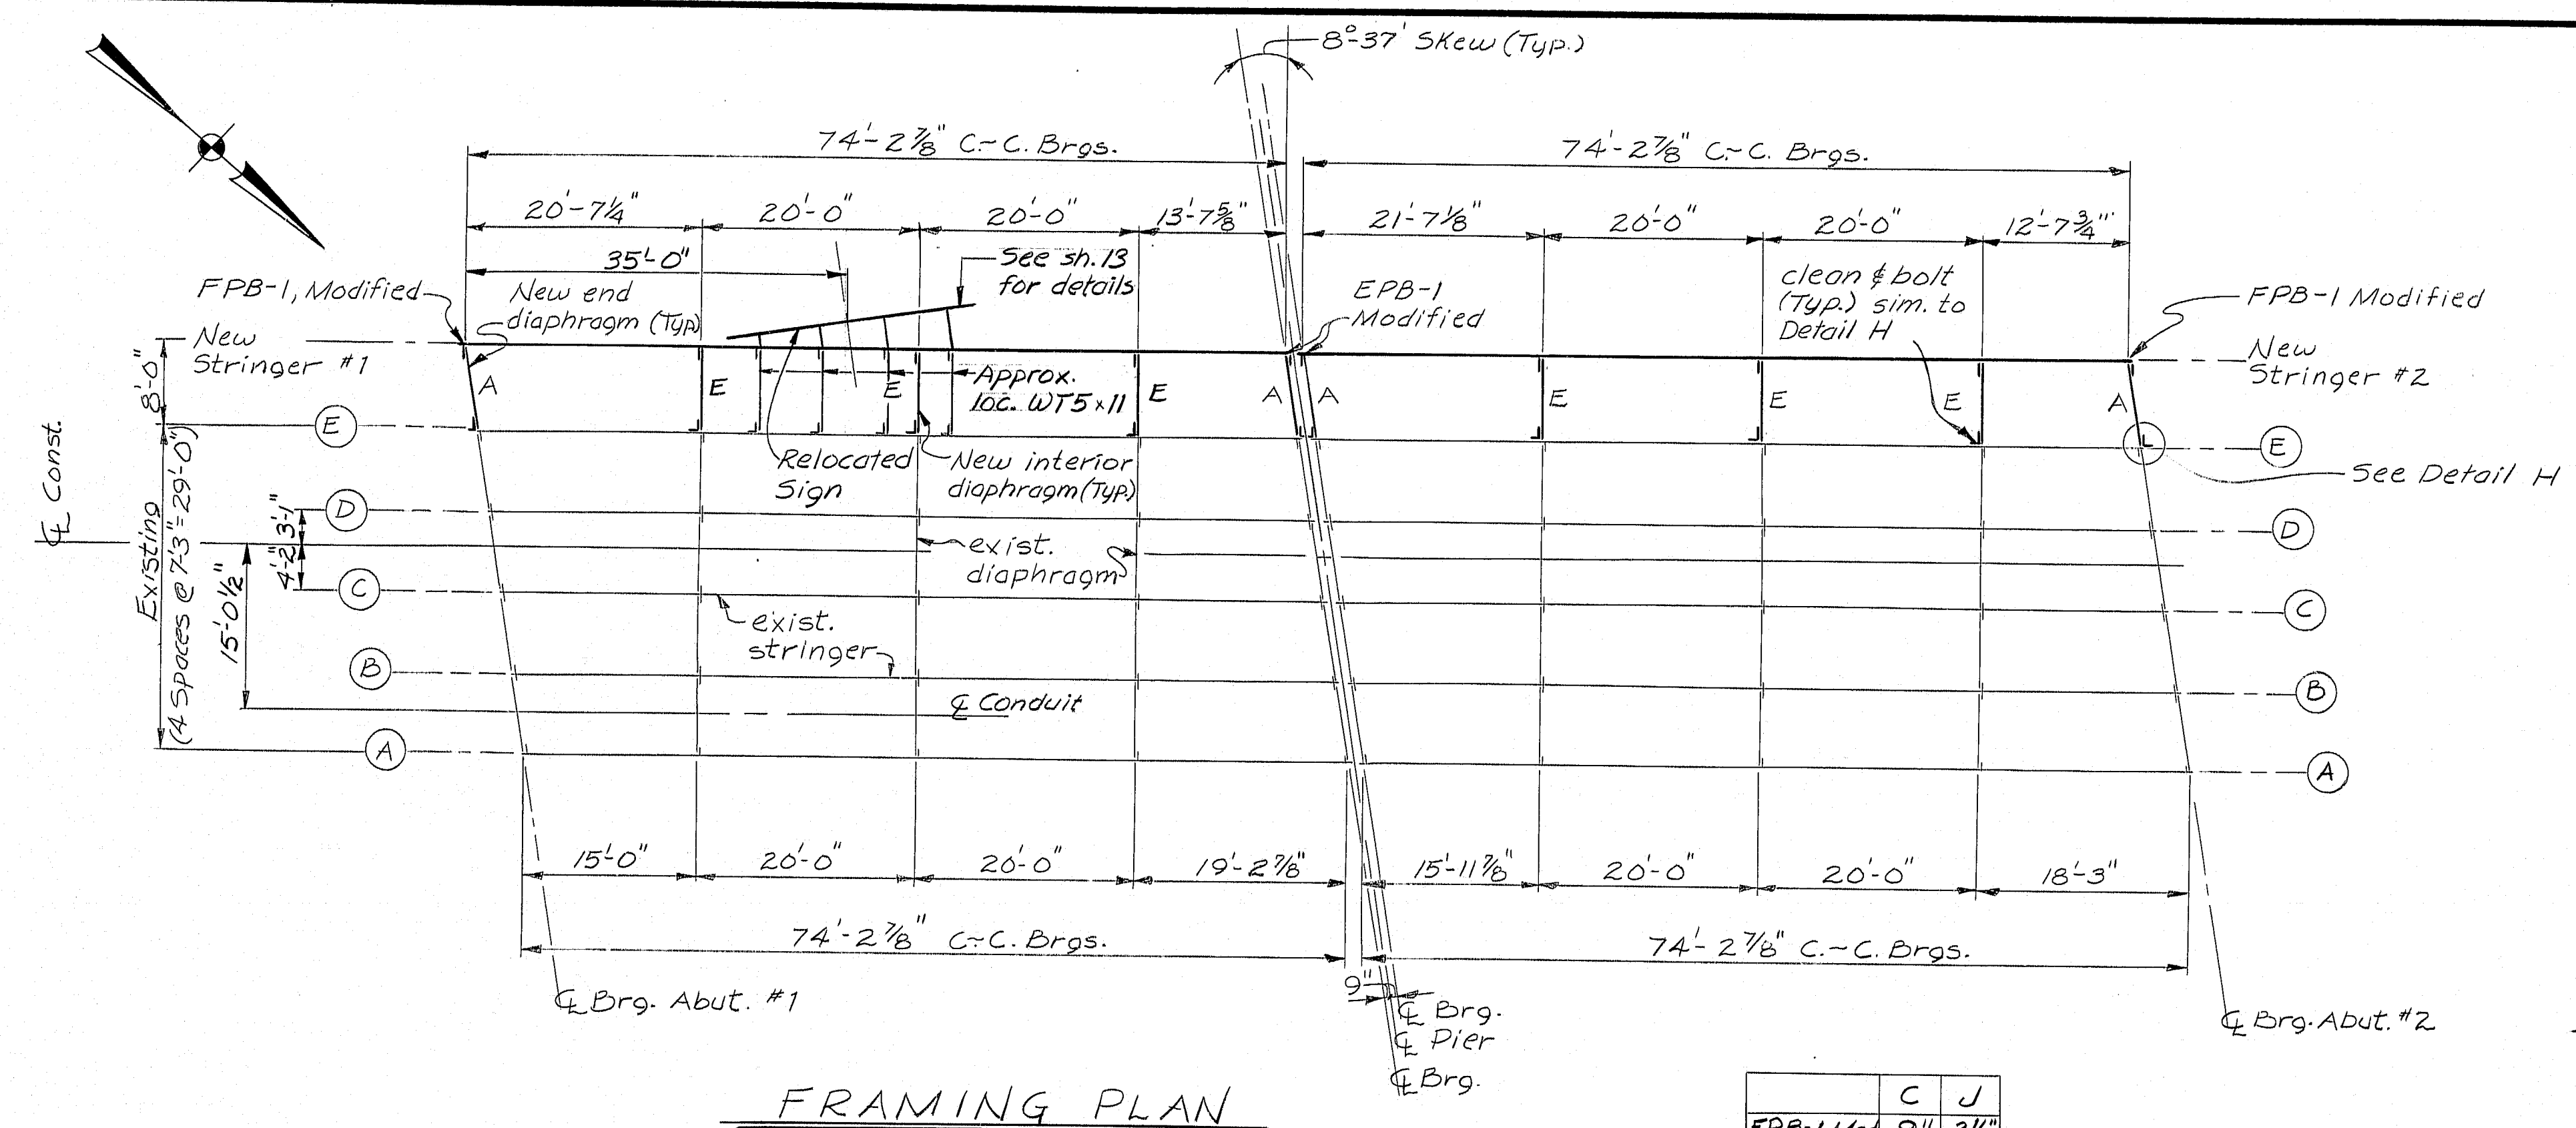 8°-37' Skew (Typ.)
74'-2 7/8" C.-C. Brgs.
74'-2 7/8" C.-C. Brgs.
20'-7 1/4"
20'-0"
20'-0"
13'-7 5/8"
21'-7 1/8"
20'-0"
20'-0"
12'-7 3/4"
35'-0"
See sh. 13
for details
FPB-1, Modified
New end
diaphragm (Typ)
EPB-1
Modified
clean & bolt
(Typ.) sim. to
Detail H
FPB-1 Modified
New
Stringer #1
New
Stringer #2
8'-0"
A
E
E
Approx.
loc. WT5x11
E
A
A
E
E
E
A
E
E
Relocated
Sign
New interior
diaphragm (Typ.)
See Detail H
℄ Const.
Existing
(4 Spaces @ 7'-3" = 29'-0")
3'-1"
4'-2"
15'-0 1/2"
D
D
exist.
diaphragm
C
C
exist.
stringer
B
B
℄ Conduit
A
A
15'-0"
20'-0"
20'-0"
19'-2 7/8"
15'-11 7/8"
20'-0"
20'-0"
18'-3"
74'-2 7/8" C-C. Brgs.
74'-2 7/8" C.-C. Brgs.
9"
℄ Brg. Abut. #1
℄ Brg.
℄ Pier
℄ Brg.
℄ Brg. Abut. #2
FRAMING PLAN
C J